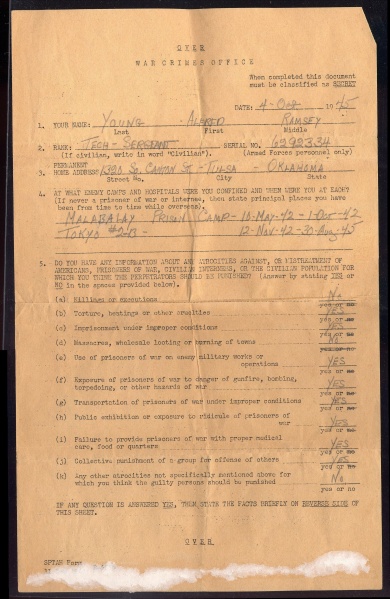 OVER
WAR CRIMES OFFICE
When completed this document
must be classified as SECRET
DATE: 4-Oct- 1945
1. YOUR NAME: YOUNG - ALFRED RAMSEY
Last First Middle
2. RANK: TECH-SERGEANT SERIAL NO. 6292334
(If civilian, write in word "Civilian"). (Armed Forces personnel only)
PERMANENT
3. HOME ADDRESS 1320 So. CANTON St. - TULSA - OKLAHOMA
Street No. City State
4. AT WHAT ENEMY CAMPS AND HOSPITALS WERE YOU CONFINED AND WHEN WERE YOU AT EACH?
(If never a prisoner of war or internee, then state principal places you have
been from time to time while overseas).
MALABALAY PRISON CAMP - 10-MAY-42 - 1-Oct-42
TOKYO #2B- 12-Nov-42-30-Aug-45
5. DO YOU HAVE ANY INFORMATION ABOUT ANY ATROCITIES AGAINST, OR MISTREATMENT OF
AMERICANS, PRISONERS OF WAR, CIVILIAN INTERNEES, OR THE CIVILIAN POPULATION FOR
WHICH YOU THINK THE PERPETRATORS SHOULD BE PUNISHED? (Answer by stating YES or
NO in the spaces provided below).
(a) Killings or executions No
yes or no
(b) Torture, beatings or other cruelties YES
yes or no
(c) Imprisonment under improper conditions YES
yes or no
(d) Massacres, wholesale looting or burning of towns No
yes or no
(e) Use of prisoners of war on enemy military works or
operations YES
yes or no
(f) Exposure of prisoners of war to danger of gunfire, bombing,
torpedoing, or other hazards of war YES
yes or no
(g) Transportation of prisoners of war under improper conditions YES
yes or no
(h) Public exhibition or exposure to ridicule of prisoners of
war YES
yes or no
(i) Failure to provide prisoners of war with proper medical
care, food or quarters YES
yes or no
(j) Collective punishment of a group for offense of others YES
yes or no
(k) Any other atrocities not specifically mentioned above for
which you think the guilty persons should be punished No
yes or no
IF ANY QUESTION IS ANSWERED YES, THEN STATE THE FACTS BRIEFLY ON REVERSE SIDE OF
THIS SHEET.
OVER
SPTAH Form